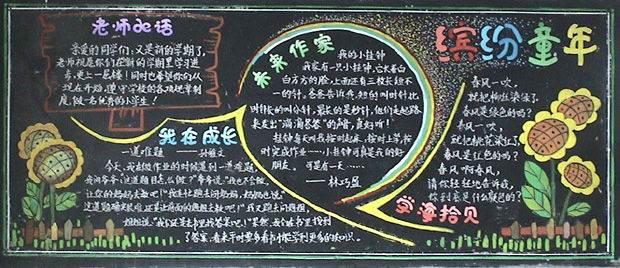 老师de话
亲爱的同学们:又是新的学期了,
老师祝愿你们在新的学期里学习进
步,更上一层楼!同时也希望你们从
现在开始,遵守学校的各项规章制
度,做一名优秀的小学生!
未来作家
我的小挂钟
我家有一只小挂钟,它长着白
白方方的脸,上面还有三根长短不
一的针,爸爸告诉我,短的叫时针,比
时针长的叫分针,最长的是秒针,他们走起路
来发出“滴滴答答”的声音,真好听!
挂钟每天叫我按时起床,按时上学,按
时完成作业……小挂钟可真是我的好
朋友。可是有一天……
——林巧盈
缤纷童年
春风一吹,
就把柳丝染绿了,
春风是绿色的吗?
春风一吹,
就把桃花染红了,
春风是红色的吗?
春风啊春风,
请你轻轻地告诉我,
你到底是什么颜色的?
我在成长
一道难题 ——孙雅文
今天,我在做作业的时候遇到一道难题,
我问爷爷:“这道题目怎么做?”爷爷说:“我也不会做,
让你的妈妈去教吧!”我连忙跑去问妈妈,妈妈也说:“
了答案,看来平时要多看书才能学到更多的知识。
学海拾贝